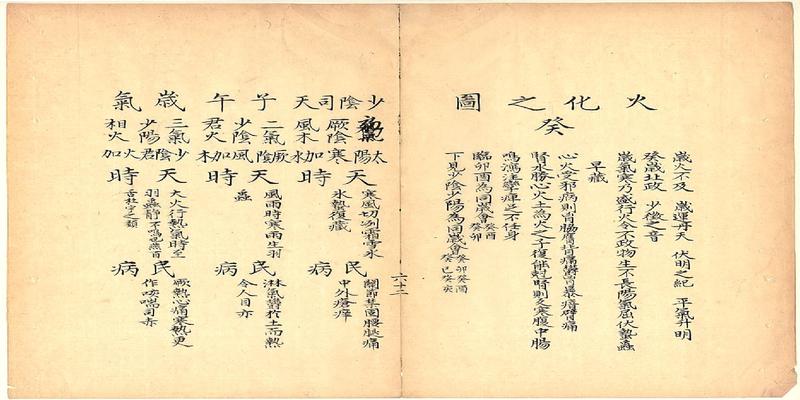 火化之圖
癸
歲火不及 歲運丹天 伏明之紀 平氣升明
癸歲北政 少徵之音
歲氣寒乃盛行火令不政物生不長陽氣屈伏蟄蟲
早藏
心火受邪病則胷脇膺背痛鬱冒暴瘖臂痛
腎水勝心火土為火之子復
鳴溏注攣痺足不任身
臨卯酉為同歲會癸酉癸卯
下見少陰少陽為同歲會癸卯癸酉癸巳癸亥
六十二
少陰司天子午歲氣
初氣太陽
厥陰寒
風木加水
天時
寒風切冽霜雪水
氷蟄復藏
民病
關節禁固腰腿痛
中外瘡瘍
二氣厥陰
少陰風
君火加木
天時
風雨時寒雨生羽
蟲
民病
淋氣鬱於上而熱
令人目赤
三氣少陰
少陽君
相火加火
天時
大火行熱氣時至
羽蟲靜不鳴也燕百
舌杜宇之類
民病
厥熱心痛寒熱更
作咳喘目赤